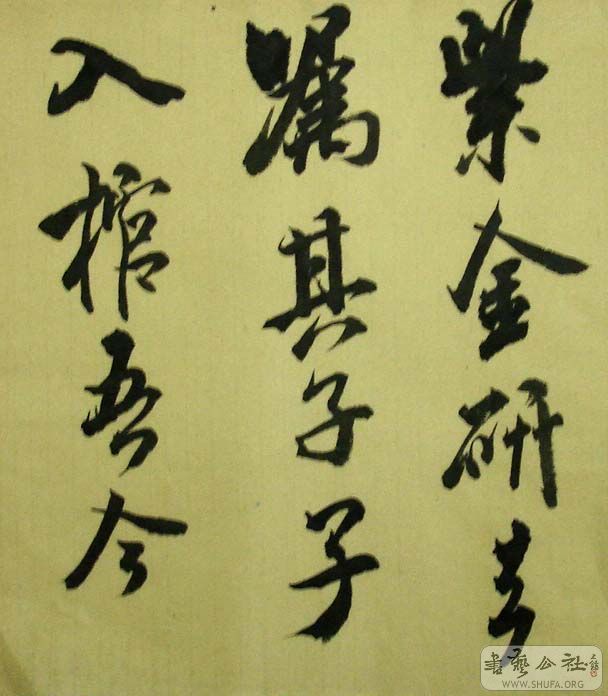 紫金研去
嘱其子子
入棺吾今
書藝公社
WWW.SHUFA.ORG